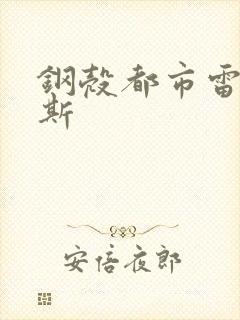 鋼殼都市雷
斯
安倍夜郎